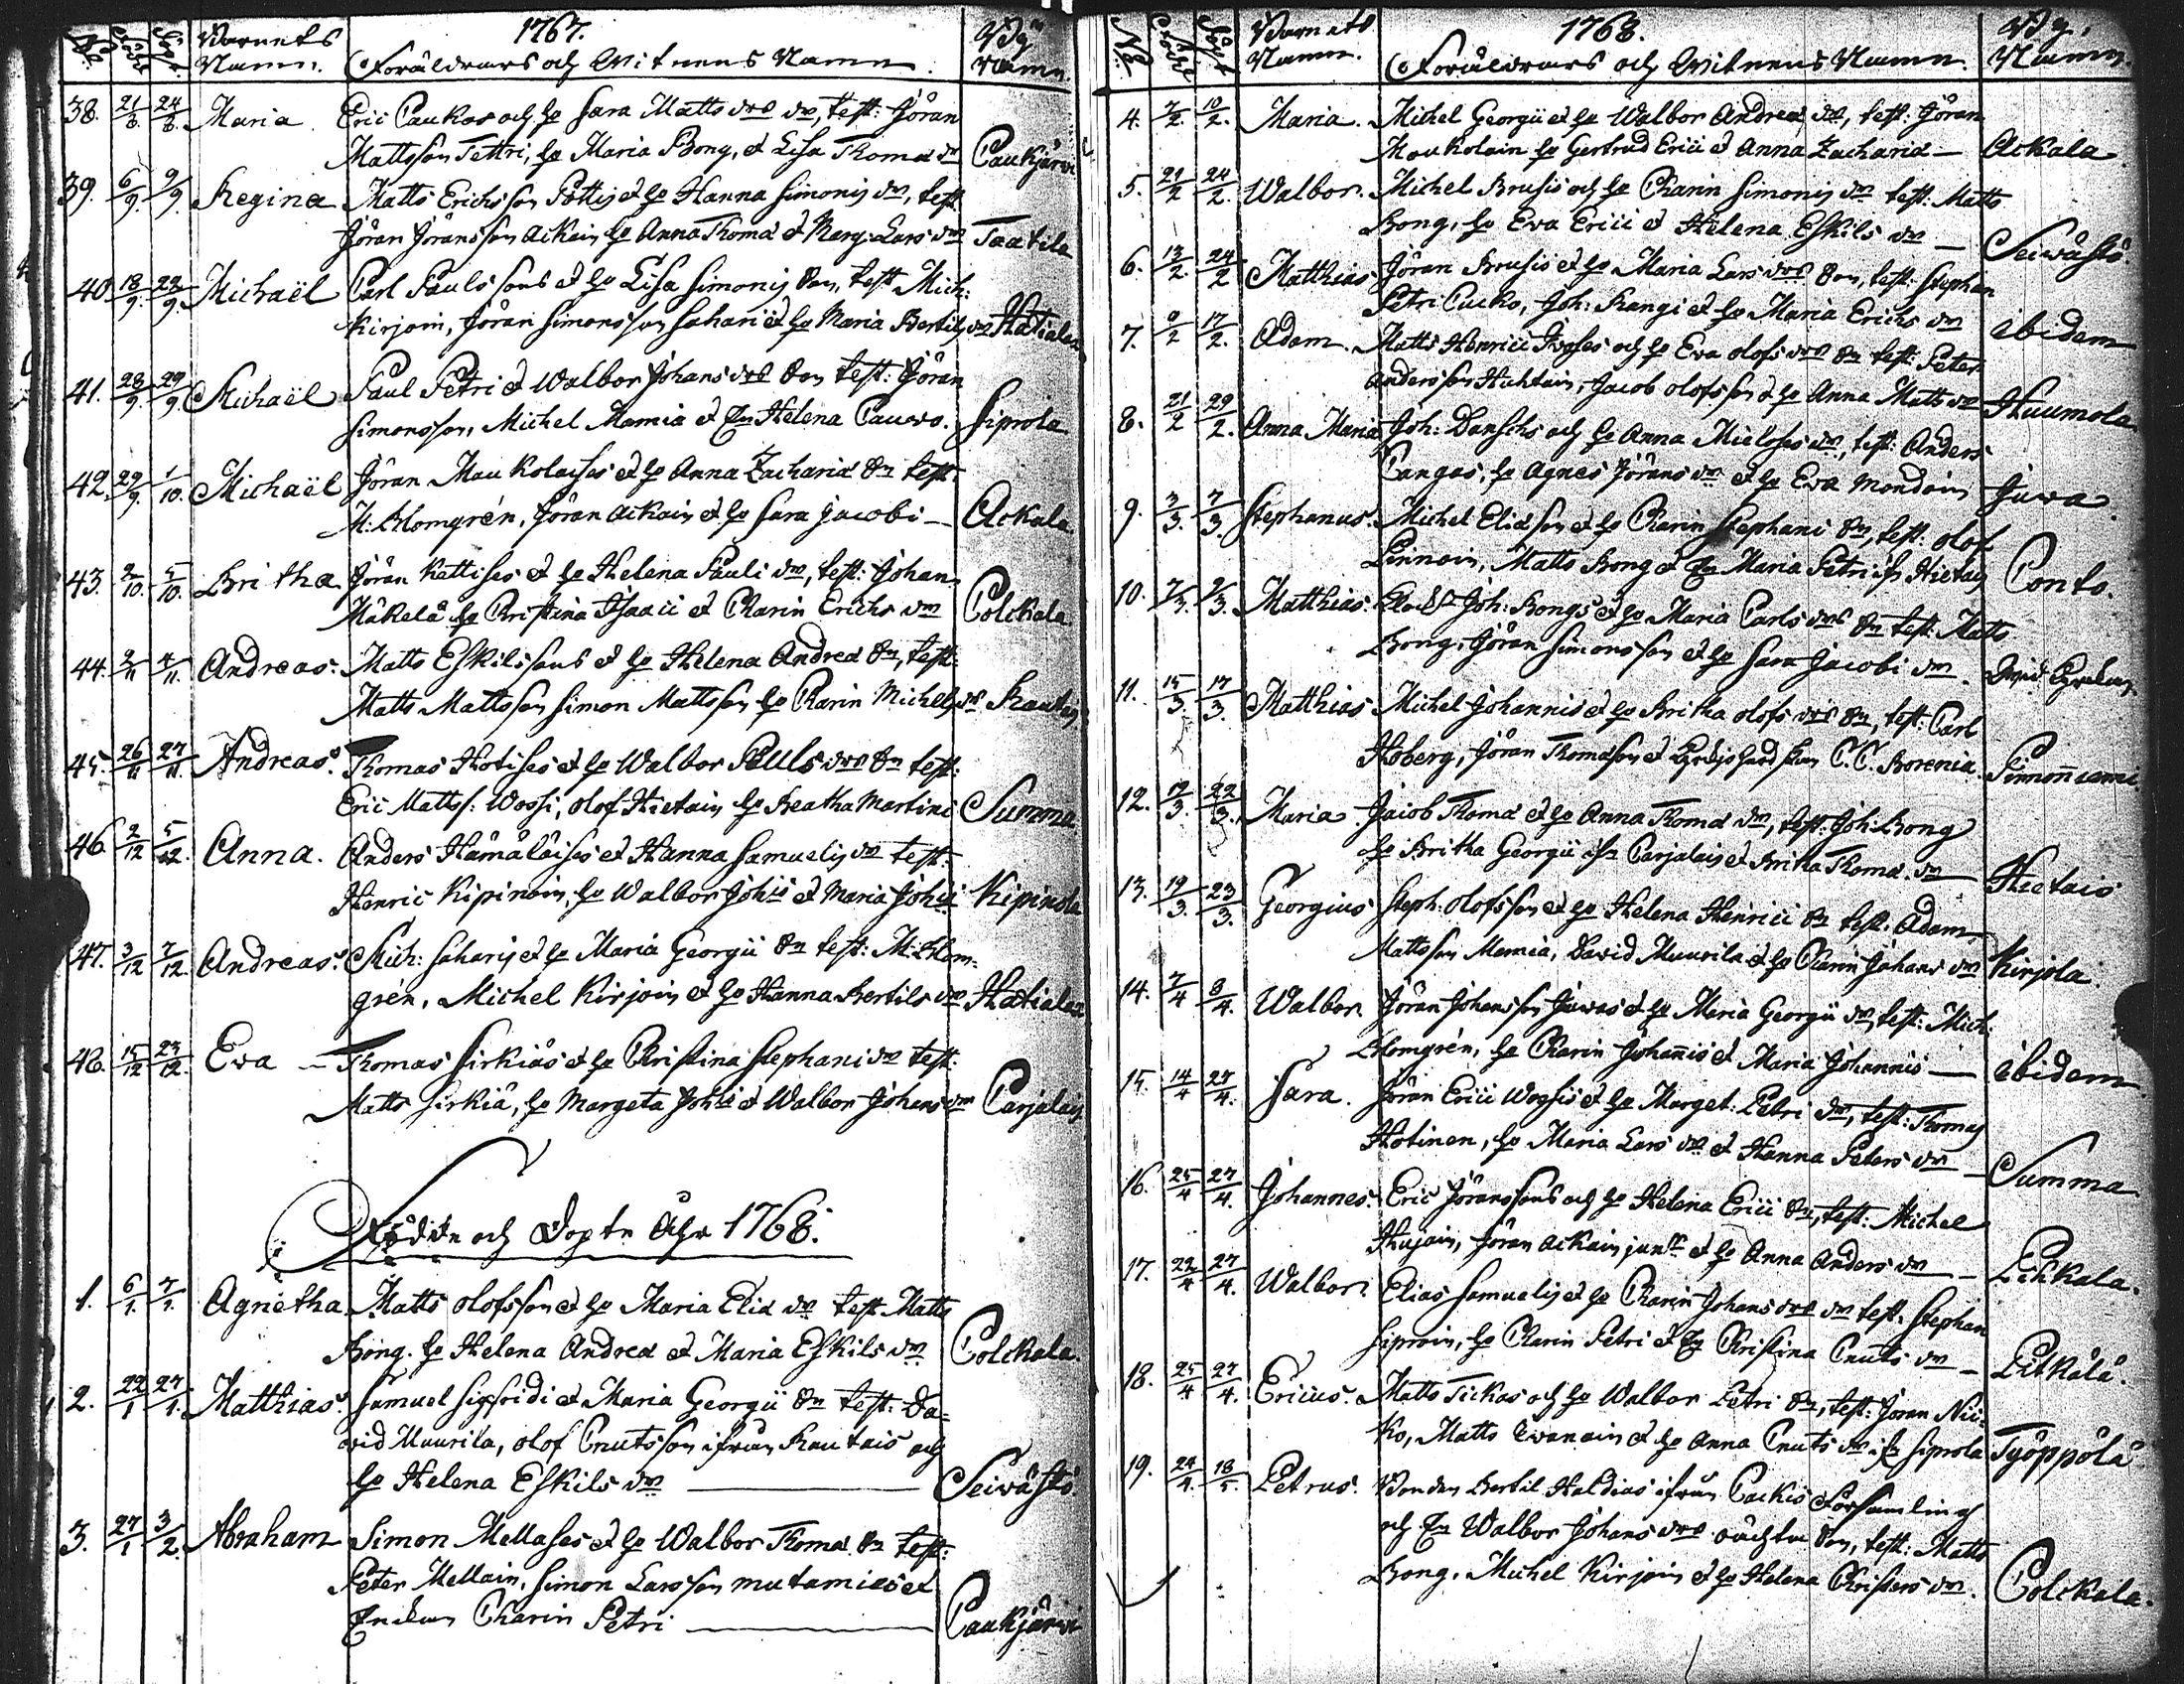 1767.
No. Född Döpt Barnets Namn. Föräldrars och Witnens Namn. Byns Namn.
38. 21/8. 24/8. Maria Eric Paukas och h. Sara Matts drs dr, test: Jöran
Mattsson Tettri, h. Maria Bong, et Lisa Thomæ dr Paukjärvi
39. 6/9. 9/9. Regina Matts Erichsson Pöttis et h. Hanna Simonis dr, test
Jöran Jöransson Ackain h. Anna Thomæ et Marg: Lars dr Taatila
40. 18/9. 22/9. Michaël Carl Paulssons et h. Lisa Simonis dr, test Mich:
Kirjoin, Jöran Simonsson Sahari et h. Maria Bertils dr Hatiala
41. 28/9. 29/9. Michaël Paul Petri et Walbor Johans drs dr test: Jöran
Simonsson, Michel Mamia et Helena Pauvo. Siprola
42. 29/9. 1/10. Michaël Jöran Maukolaises et h. Anna Zachariæ dr test.
M: Blomgrén, Jöran Ackain et h. Sara Jacobi — Ackala
43. 2/10. 5/10. Britha Jöran Kattises et h. Helena Pauli dr, test: Johan
Mäkelä h. Christina Isaaci et Charin Erichs dr Colckala
44. 2/11 4/11. Andreas. Matts Eskilssons et h. Helena Andreæ dr, test:
Matts Mattsson Simon Mattsson h. Charin Michels dr Rautais
45. 26/11 27/11. Andreas. Thomas Hotises et h. Walbor Pauls drs dr test:
Eric Mattss: Wossi, Olof Hietain h. Beatha Martini Summa
46 2/12 5/12. Anna. Anders Hämäläises et Hanna Samuelis dr test.
Henric Kipinoin, h. Walbor Johis et Maria Johis Kipinola
47. 3/12 7/12. Andreas. Mich: Saharis et h. Maria Georgii dr test: M: Blom=
grén, Michel Kirjoin et h. Hanna Bertils dr Hatiala
48. 15/12 23/12. Eva — Thomas Sirkiäs et h. Christina Stephani dr test:
Matts Sirkiä, h. Margeta Johis et Walbor Johans dr Carjalais
Födde och Döpte Åhr 1768.
1. 6/1. 7/1. Agnetha. Matts Olofsson et h. Maria Eliæ dr test. Matts
Bong. h. Helena Andreæ et Maria Eskils dr Colckala.
2. 22/1 27/1. Matthias. Samuel Sigfridi et Maria Georgii dr test: Da=
vid Muurila, Olof Cnutsson ifrån Rautais och
h. Helena Eskils dr — Seivästö.
3. 27/1 3/2. Abraham Simon Mellases et h. Walbor Thomæ dr test:
Peter Mellain, Simon Larsson et
Charin Petri — Paukjärvi
1768.
No. Född Döpt Barnets Namn. Föräldrars och Witnens Namn. By. Namn.
4. 7/2. 10/2. Maria. Michel Georgii et h. Walbor Andreæ dr, test: Jöran
Maukolain h. Gertrud Ericii et Anna Zachariæ — Ackala
5. 21/2 24/2. Walbor. Michel Brusis och h. Charin Simonis dr test: Matts
Bong, h. Eva Ericii et Helena Eskils dr — Seivästö.
6. 13/2. 24/2 Matthias Jöran Brusis et h. Maria Lars drs dr, test: Stephan
Petri Cucko, Joh: Kangi et h. Maria Erichs dr ibidem
7. 9/2 17/2. Adam. Matts Henrici och h. Eva Olofs drs dr test: Peter
Andersson Huhtain, Jacob Olofsson et h. Anna Matts dr Huumola
8. 21/2 29/2. Anna Maria Joh: Danschs och h. Anna dr, test: Anders
Cangas, h. Agnes Jörans dr et h. Eva Mondoin Juva
9. 3/3. 7/3. Stephanus. Michel Eliæson et h. Charin Stephani dr, test: Olof
Pinnoin, Matts Bong et Maria Petri ifr Hietais Conto.
10. 7/3. 9/3. Matthias. Joh: Bongs et h. Maria Carls drs dr test: Matts
Bong, Jöran Simonsson et h. Sara Jacobi dr.
11. 15/3. 17/3. Matthias Michel Johannis et h. Britha Olofs drs dr, test: Carl
Hoberg, Jöran Thomæson et C. C. Borenia.
12. 19/3. 22/3. Maria. Jacob Thomæ et h. Anna Thomæ dr, test: Joh: Bong
h. Britha Georgii ifr Carjalais et Britha Thomæ dr — Hietais
13. 19/3. 23/3. Georgius Steph: Olofsson et h. Helena Henrici dr test. Adam
Mattsson Mamia, David Muurila et h. Charin Johans dr Kirjola.
14. 7/4 8/4. Walbor. Jöran Johansson Juvas et h. Maria Georgii dr, test: Mich:
Blomgrén, h. Charin Johannis et Maria Johannis — ibidem
15. 14/4 27/4. Sara. Jöran Ericii Wossis et h. Marget: Petri dr, test: Thomas
Hotinen, h. Maria Lars dr et Hanna Peters dr — Summa
16. 25/4 27/4. Johannes. Eric Jöranssons och h. Helena Ericii dr, test: Michel
Hujain, Jöran Ackain junr et h. Anna Anders dr — Pihkala.
17. 22/4 27/4. Walbor. Elias Samuelis et h. Charin Johans drs dr test. Stephan
Siproin, h. Charin Petri et Christina Cnuts dr — Pitkälä.
18. 25/4 27/4. Ericus. Matts Tickas och h. Walbor Petri dr, test: Jöran Nii=
ko, Matts Evanain et h. Anna Cnuts dr ifr Siprola Työppölä
19. 24/4. 18/5. Petrus. Bonden Bertil Haldias ifrån Packis Församling
och Walbor Johans drs dr, test: Matts
Bong, Michel Kirjoin et h. Helena Christers dr. Colckala.